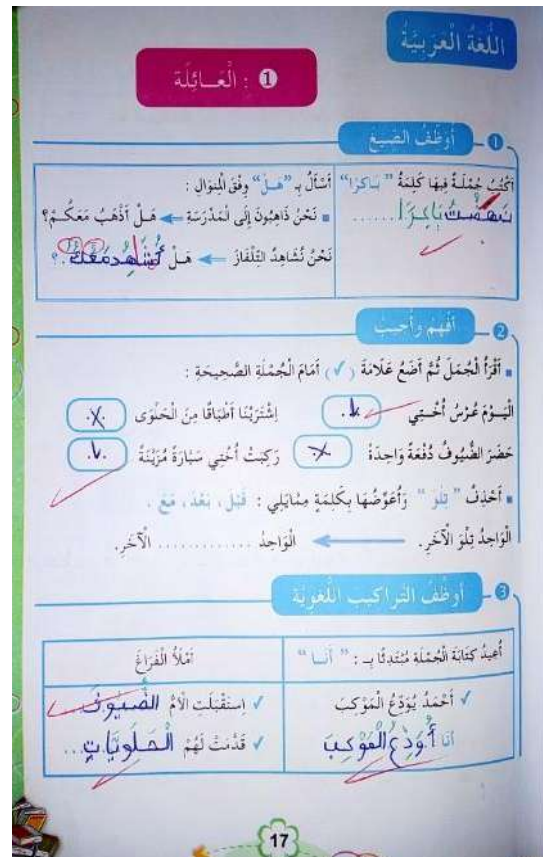 اللُّغَةُ الْعَرَبِيَّةُ
❶ : الْعَـــائِلَة
❶ أُوَظِّفُ الصِّيَغَ
أَكْتُبُ جُمْلَةً فِيهَا كَلِمَةُ " بَـاكِرًا "
نَهَضْتُ بَاكِرًا ......
أَسْأَلُ بِـ "هَـلْ" وِفْقَ الْمِنْوَالِ :
▪ نَحْنُ ذَاهِبُونَ إِلَى الْمَدْرَسَةِ ← هَـلْ أَذْهَبُ مَعَكُـمْ؟
نَحْنُ نُشَاهِدُ التِّلْفَازَ ← هَـلْ أُشَاهِدُ مَعَكُمْ ؟
❷ أَفْهَمُ وَأُجِيبُ
▪ أَقْرَأُ الْجُمَلَ ثُمَّ أَضَعُ عَلَامَةَ (✓) أَمَامَ الْجُمْلَةِ الصَّحِيحَةِ :
الْيَـوْمَ عُرْسُ أُخْـتِي ✓ اِشْتَرَيْنَا أَطْبَاقًا مِنَ الْحَلْوَى x
حَضَرَ الضُّيُوفُ دُفْعَةً وَاحِدَةً x رَكِبَتْ أُخْتِي سَيَّارَةً مُزَيَّنَةً ✓
▪ أَحْذِفُ " تِلْوَ " وَأُعَوِّضُهَا بِكَلِمَةٍ مِمَّايَلِي : قَبْلَ ، بَعْدَ ، مَعَ .
الْوَاحِدُ تِلْوَ الْآخَرِ. ← الْوَاحِدُ ............. الْآخَرِ.
❸ أُوَظِّفُ التَّرَاكِيبَ اللُّغَوِيَّةَ
أُعِيدُ كِتَابَةَ الْجُمْلَةِ مُبْتَدِئًا بِـ : " أَنَـا "
✓ أَحْمَدُ يُوَدِّعُ الْمَوْكِبَ
أنا أُوَدِّعُ الْمَوْكِبَ
أَمْلَأُ الْفَرَاغَ
✓ اِسْتَقْبَلَتِ الْأُمُّ الضُّيُوفَ
✓ قَدَّمَتْ لَهُمُ الْحَلَوِيَّاتِ...
17